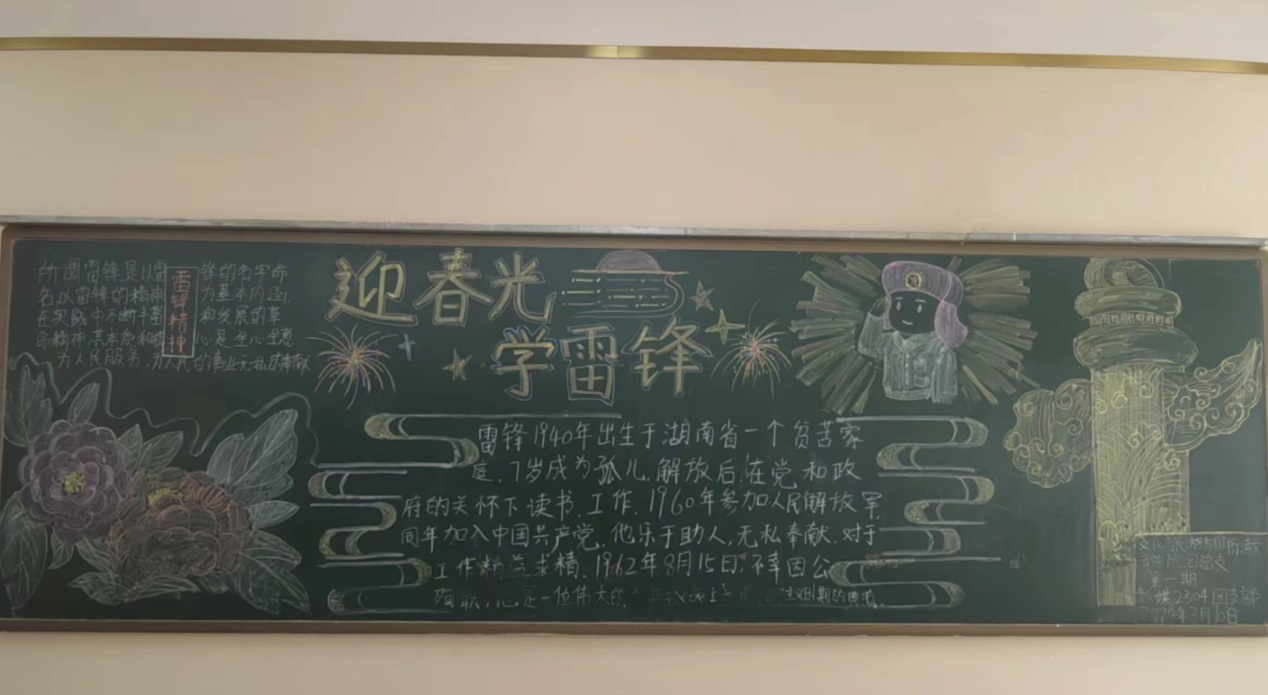 所谓雷锋是以雷锋的名字命
名以雷锋的精神为基本内涵,
在实践中不断丰富和发展的革
命精神其本质和核心是全心全意
为人民服务,为人民的事业无私奉献
雷锋精神
迎春光
学雷锋
雷锋1940年出生于湖南省一个贫苦家
庭,7岁成为孤儿,解放后,在党和政
府的关怀下读书、工作,1960年参加人民解放军
同年加入中国共产党,他乐于助人,无私奉献,对于
工作精益求精,1962年8月15日,不幸因公
殉职,他是一位伟大的
第一期